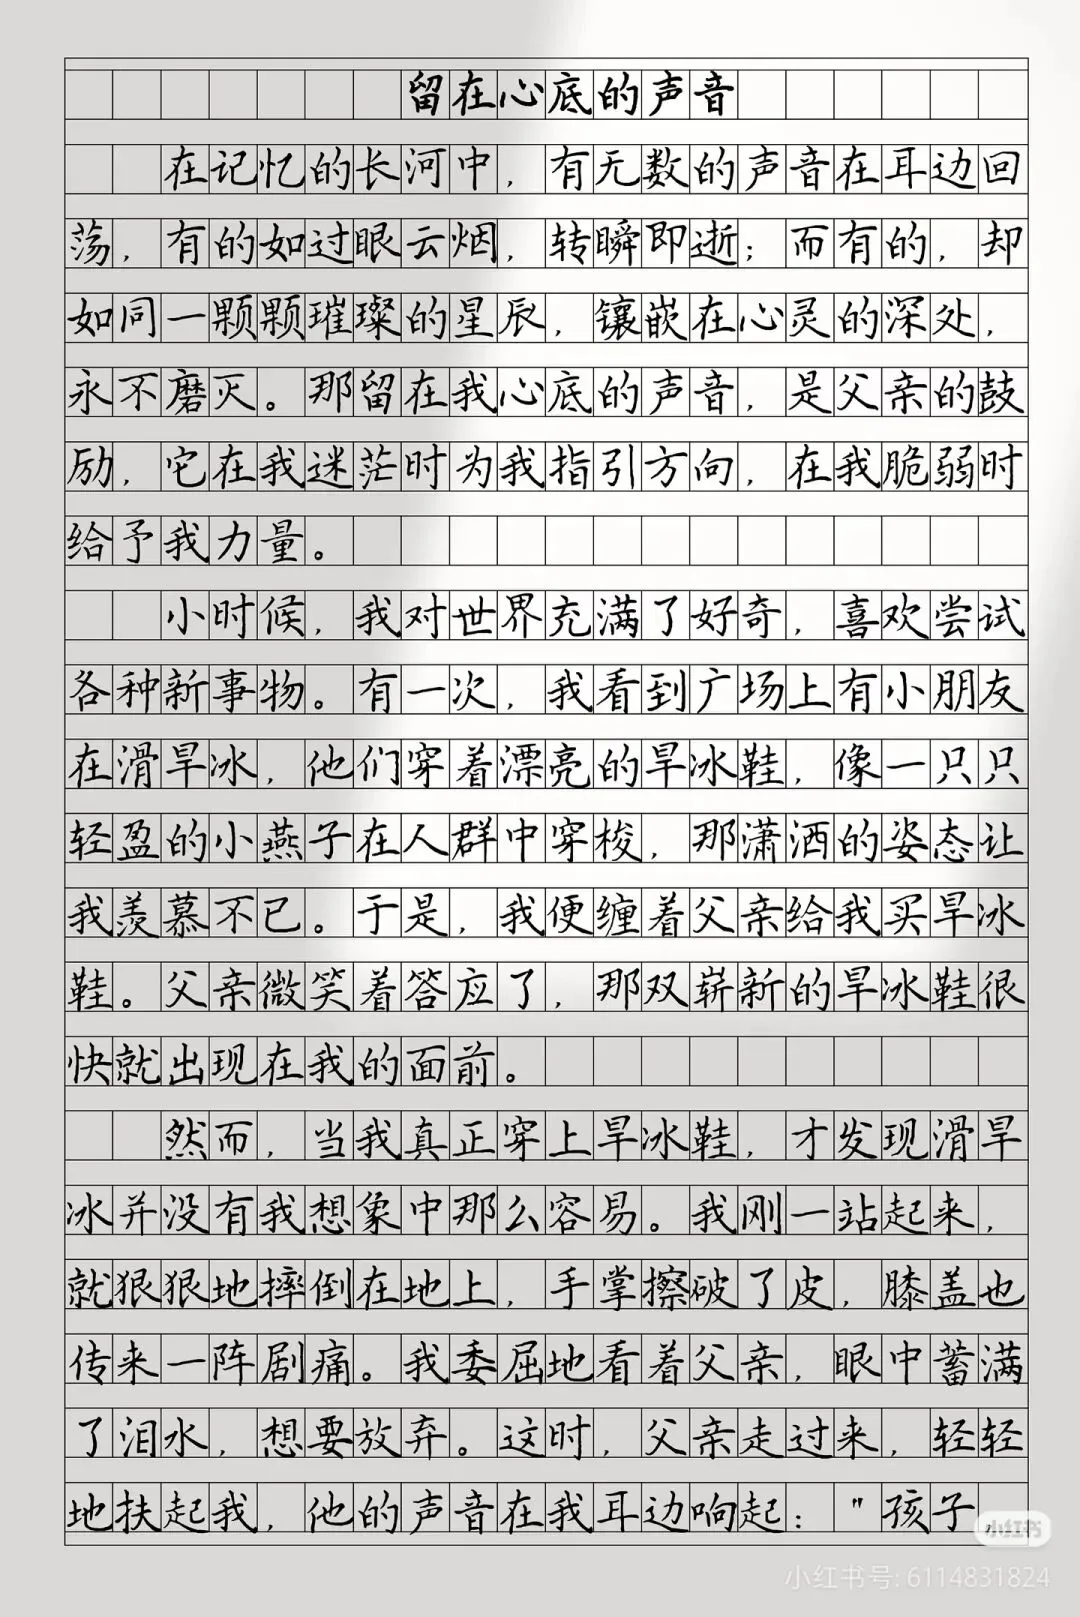 留在心底的声音
在记忆的长河中，有无数的声音在耳边回
荡，有的如过眼云烟，转瞬即逝；而有的，却
如同一颗颗璀璨的星辰，镶嵌在心灵的深处，
永不磨灭。那留在我心底的声音，是父亲的鼓
励，它在我迷茫时为我指引方向，在我脆弱时
给予我力量。
小时候，我对世界充满了好奇，喜欢尝试
各种新事物。有一次，我看到广场上有小朋友
在滑旱冰，他们穿着漂亮的旱冰鞋，像一只只
轻盈的小燕子在人群中穿梭，那潇洒的姿态让
我羡慕不已。于是，我便缠着父亲给我买旱冰
鞋。父亲微笑着答应了，那双崭新的旱冰鞋很
快就出现在我的面前。
然而，当我真正穿上旱冰鞋，才发现滑旱
冰并没有我想象中那么容易。我刚一站起来，
就狠狠地摔倒在地上，手掌擦破了皮，膝盖也
传来一阵剧痛。我委屈地看着父亲，眼中蓄满
了泪水，想要放弃。这时，父亲走过来，轻轻
地扶起我，他的声音在我耳边响起："孩子
小红书
小红书号: 6114831824